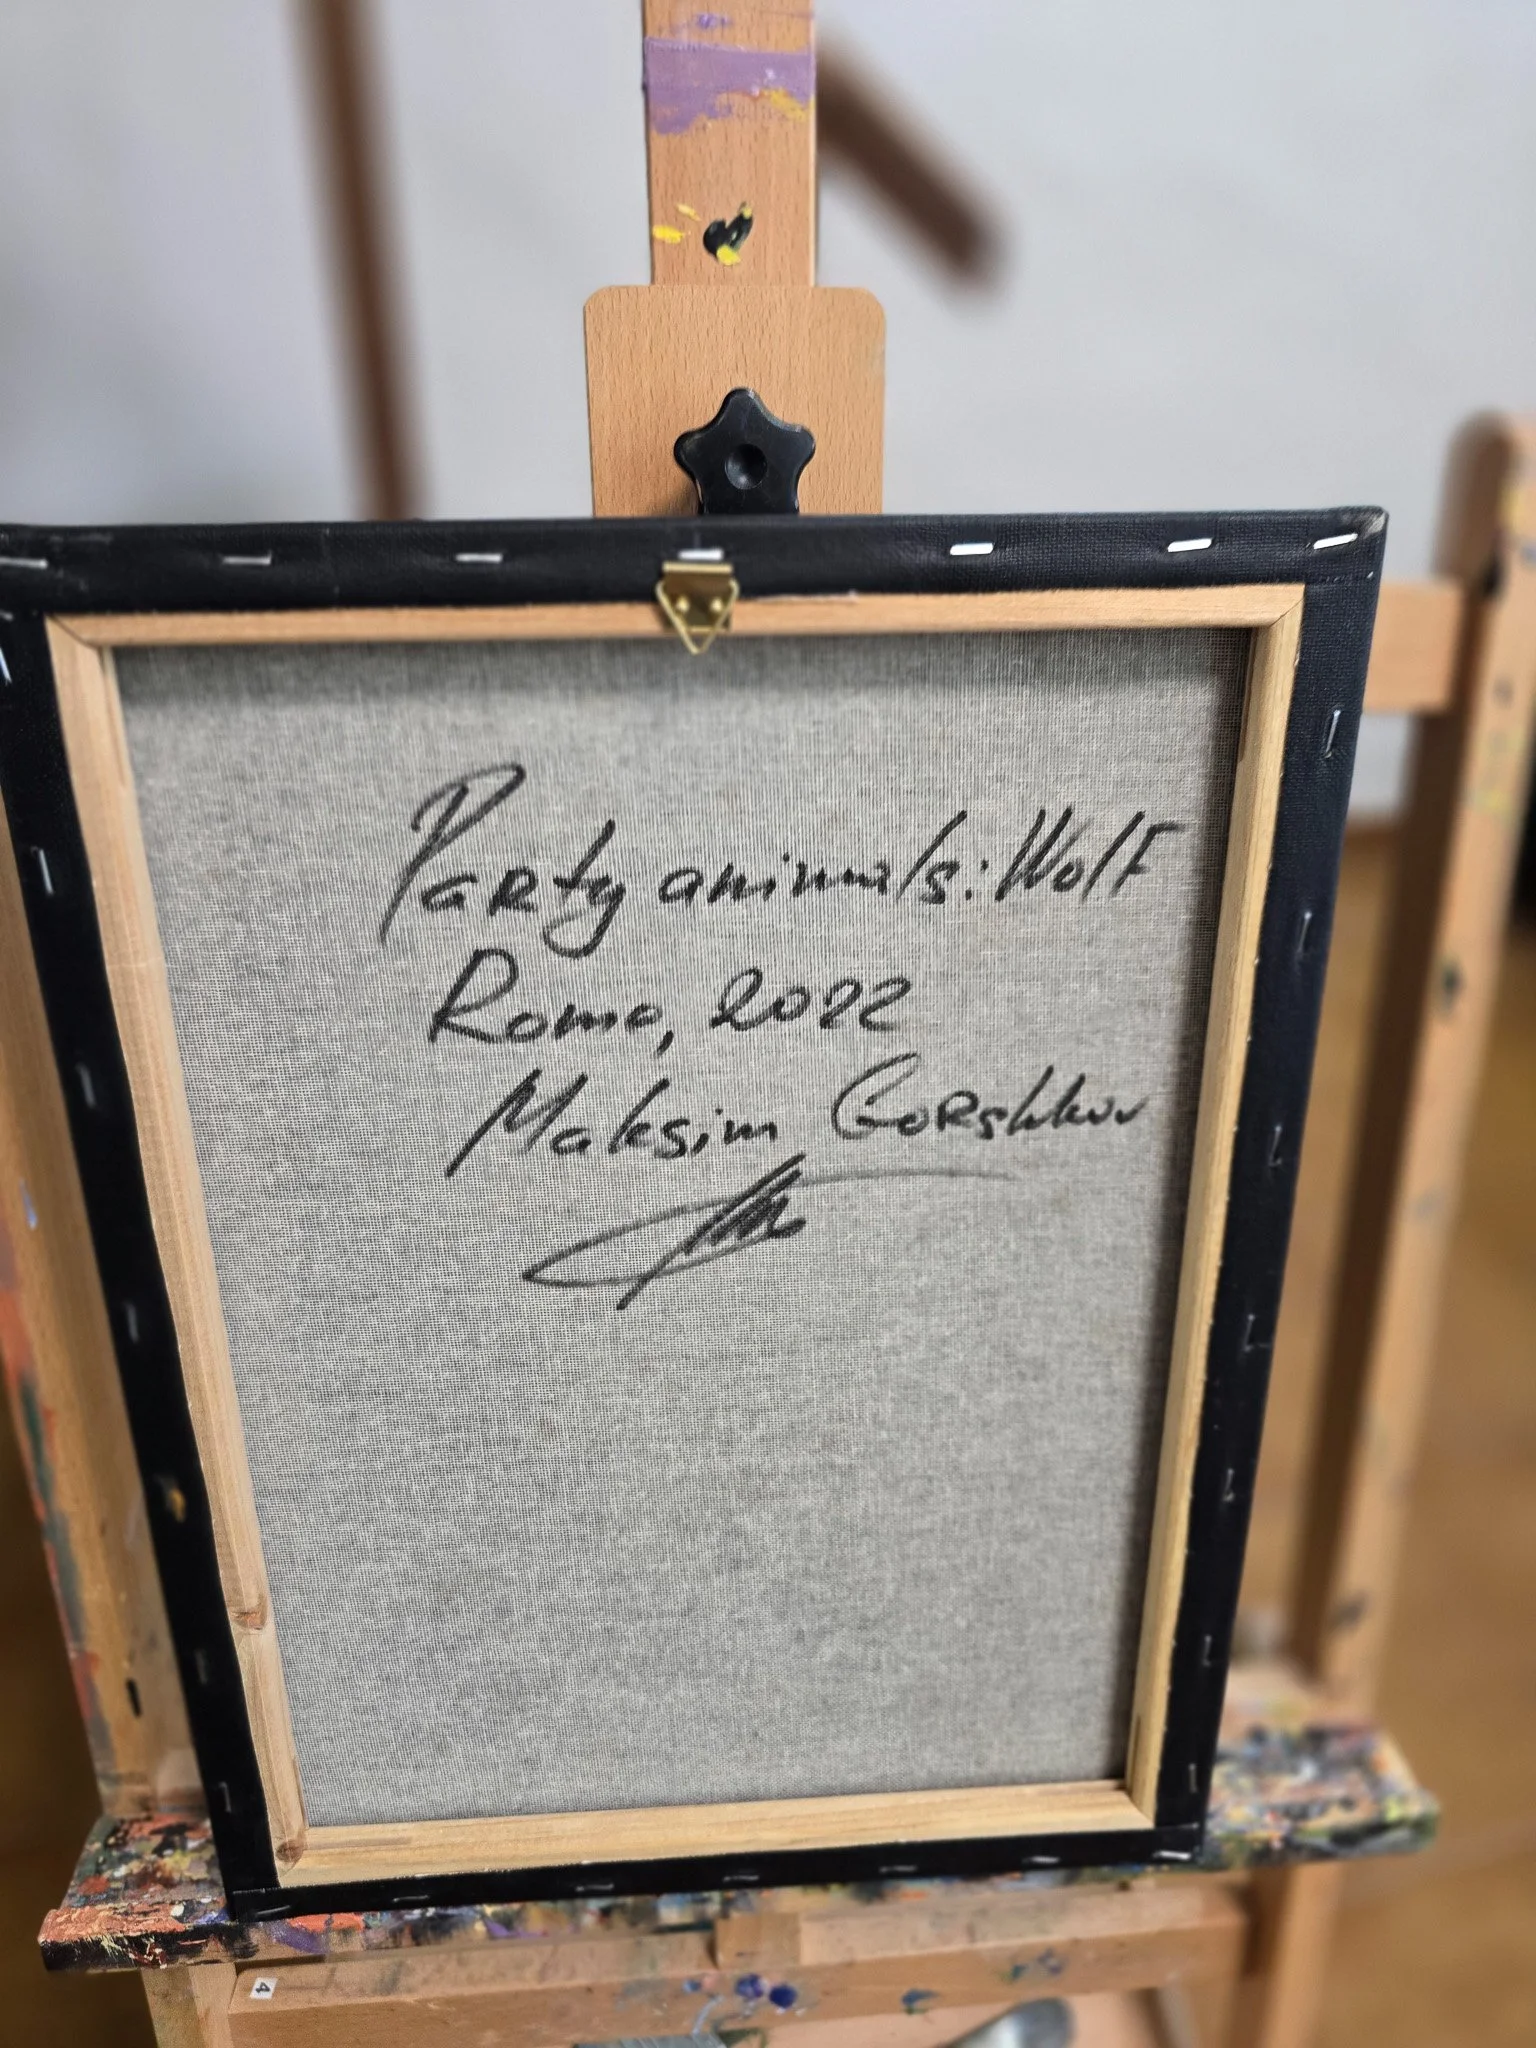 Party animals: Wolf
Roma, 2022
Maksim Gorshkov
4